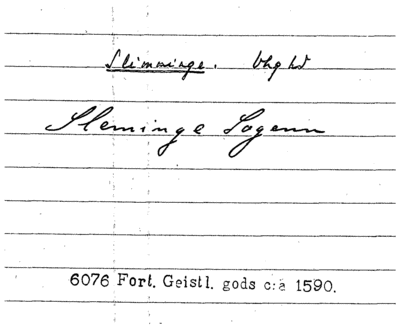 Slimminge. Vhg hd
Sleminge Sogenn
6076 Fort. Geistl. gods c:a 1590.